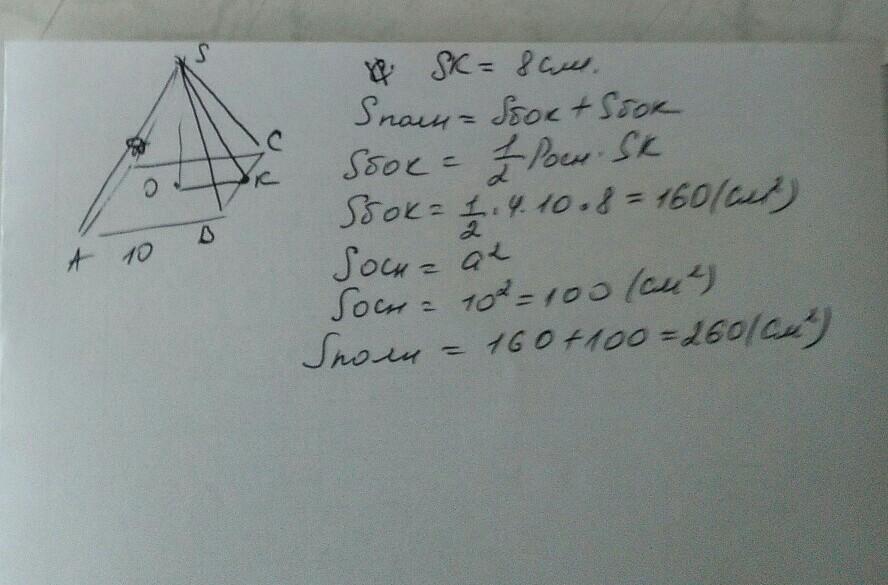 S
C
O
K
A
10
B
SK = 8 см.
Sполн = Sбок + Sбок
Sбок = 1/2 Pосн · SK
Sбок = 1/2 · 4 · 10 · 8 = 160 (см²)
Sосн = a²
Sосн = 10² = 100 (см²)
Sполн = 160 + 100 = 260 (см²)